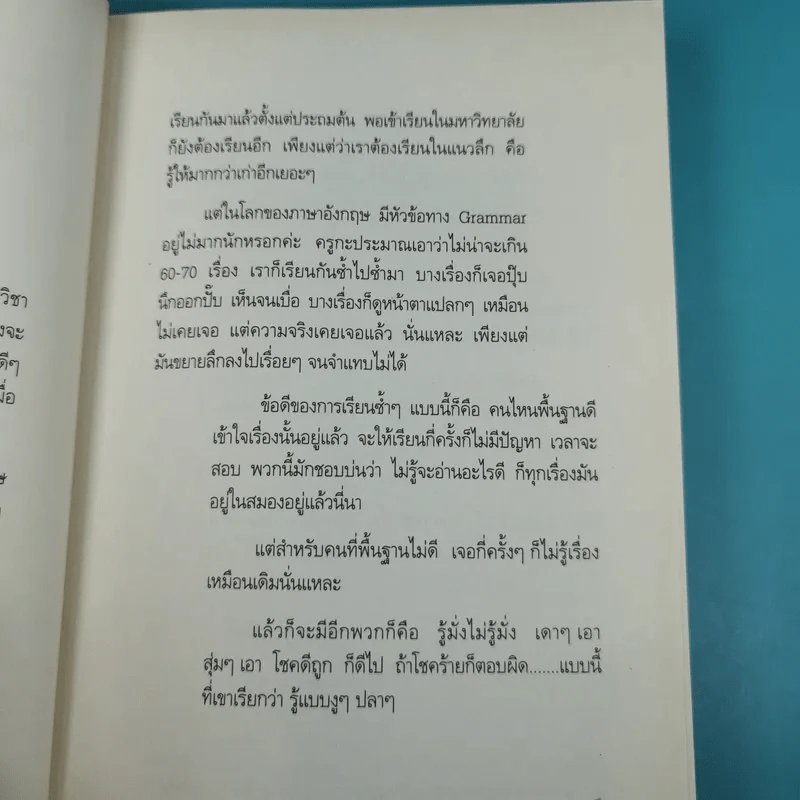 วิชา
งจะ
ดีๆ
เรียนกันมาแล้วตั้งแต่ประถมต้น พอเข้าเรียนในมหาวิทยาลัย
ก็ยังต้องเรียนอีก เพียงแต่ว่าเราต้องเรียนในแนวลึก คือ
รู้ให้มากกว่าเก่าอีกเยอะๆ
แต่ในโลกของภาษาอังกฤษ มีหัวข้อทาง Grammar
อยู่ไม่มากนักหรอกค่ะ ครูกะประมาณเอาว่าไม่น่าจะเกิน
60-70 เรื่อง เราก็เรียนกันซ้ำไปซ้ำมา บางเรื่องก็เจอปุ๊บ
นึกออกปั๊บ เห็นจนเบื่อ บางเรื่องก็ดูหน้าตาแปลกๆ เหมือน
ไม่เคยเจอ แต่ความจริงเคยเจอแล้ว นั่นแหละ เพียงแต่
มันขยายลึกลงไปเรื่อยๆ จนจำแทบไม่ได้
ข้อดีของการเรียนซ้ำๆ แบบนี้ก็คือ คนไหนพื้นฐานดี
เข้าใจเรื่องนั้นอยู่แล้ว จะให้เรียนกี่ครั้งก็ไม่มีปัญหา เวลาจะ
สอบ พวกนี้มักชอบบ่นว่า ไม่รู้จะอ่านอะไรดี ก็ทุกเรื่องมัน
อยู่ในสมองอยู่แล้วนี่นา
แต่สำหรับคนที่พื้นฐานไม่ดี เจอกี่ครั้งๆ ก็ไม่รู้เรื่อง
เหมือนเดิมนั่นแหละ
แล้วก็จะมีอีกพวกก็คือ รู้มั่งไม่รู้มั่ง เดาๆ เอา
สุ่มๆ เอา โชคดีถูก ก็ดีไป ถ้าโชคร้ายก็ตอบผิด.......แบบนี้
ที่เขาเรียกว่า รู้แบบงูๆ ปลาๆ